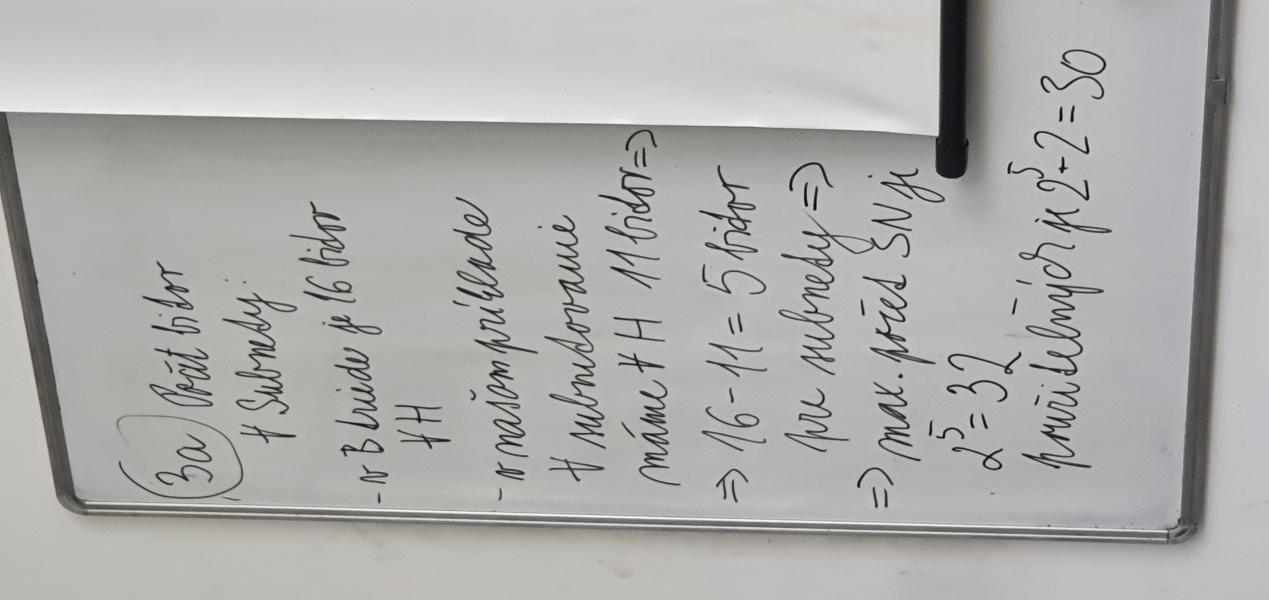 3a) Počet bitov
# Subnety:
- v B triede je 16 bitov
# H
- v našom príklade
# subnetovanie
máme # H 11 bitov =>
=> 16 - 11 = 5 bitov
pre subnety =>
=> max. počet SN je
2⁵ = 32
použiteľných je 2⁵ - 2 = 30